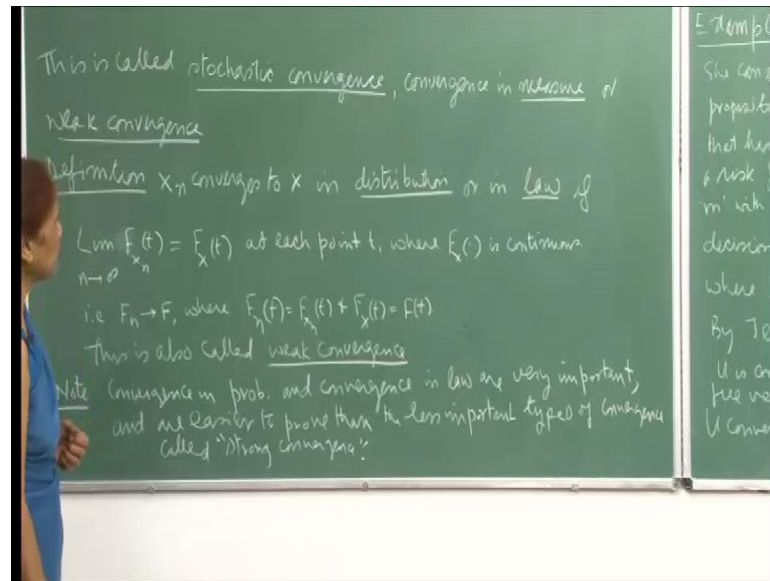 This is called stochastic convergence, convergence in measure or
weak convergence
Definition Xn converges to X in distribution or in law if
Lim F_{x_n}(t) = F_x(t) at each point t, where F_x(·) is continuous
n→∞
i.e Fn → F, where F_n(t) = F_{x_n}(t) & F_x(t) = F(t)
This is also called weak convergence
Note Convergence in prob. and convergence in law are very important,
and are easier to prove than the less important types of convergence
called "strong convergence".
Exampl
She can
proposit
that her
a risk
m' with
decision
where
By Je
U is co
U conver